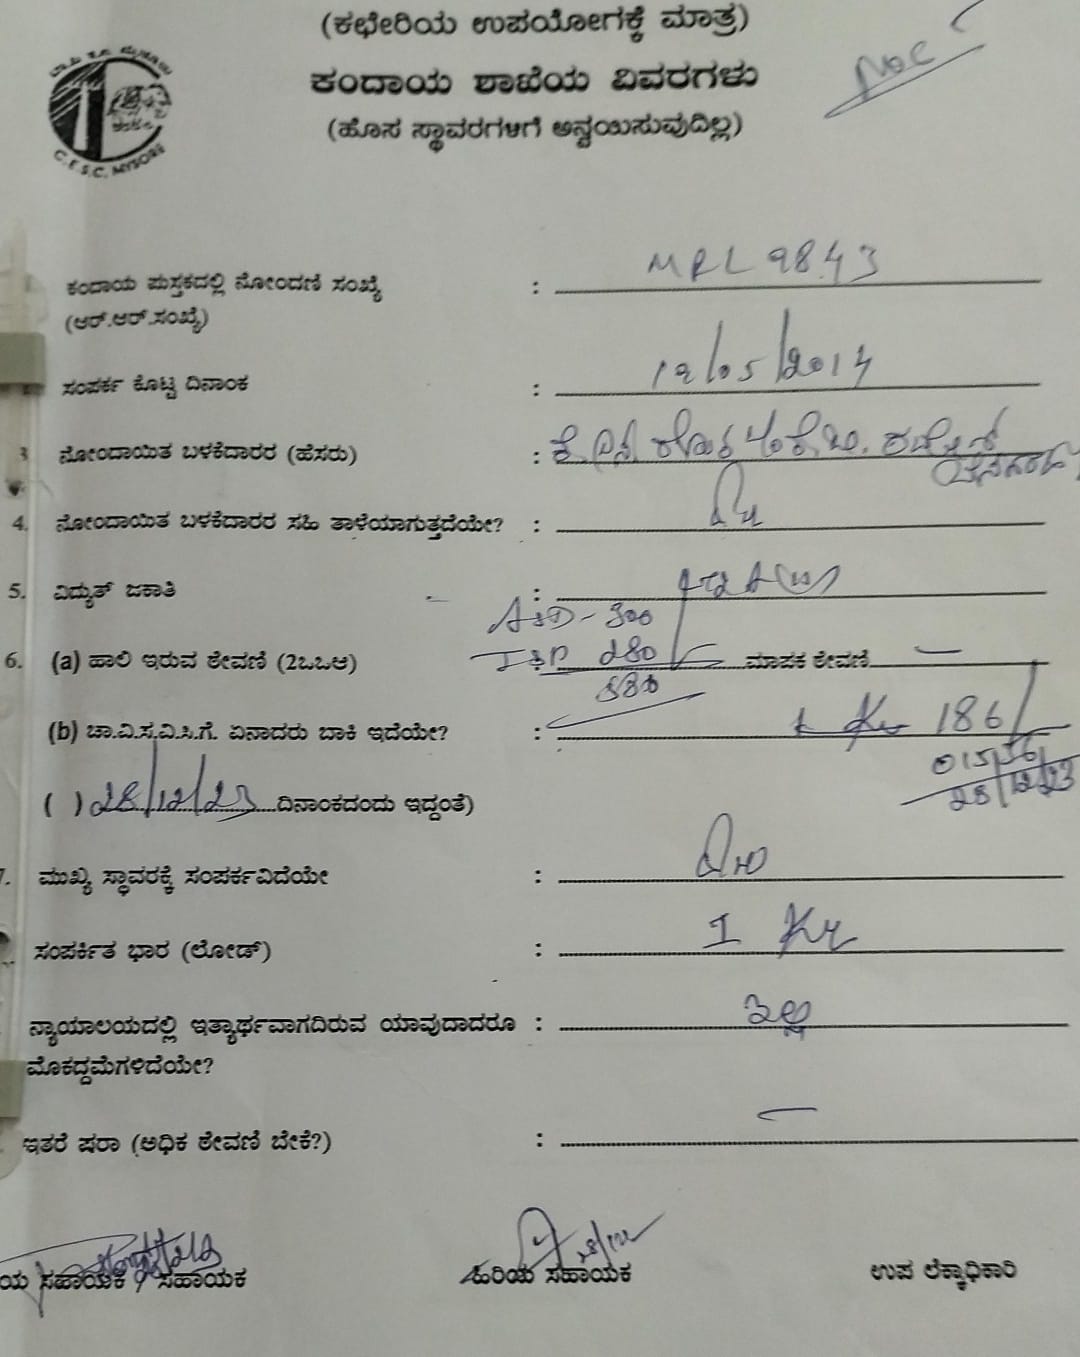 (ಕಛೇರಿಯ ಉಪಯೋಗಕ್ಕೆ ಮಾತ್ರ)
ಕಂದಾಯ ಶಾಖೆಯ ವಿವರಗಳು
(ಹೊಸ ಸ್ಥಾವರಗಳಿಗೆ ಅನ್ವಯಿಸುವುದಿಲ್ಲ)
C.E.S.C. MYSORE
ಕಂದಾಯ ಪುಸ್ತಕದಲ್ಲಿ ನೋಂದಣಿ ಸಂಖ್ಯೆ : MRL 9843
(ಆರ್.ಆರ್.ಸಂಖ್ಯೆ)
ಸಂಪರ್ಕ ಕೊಟ್ಟ ದಿನಾಂಕ : 12/05/2014
3 ನೋಂದಾಯಿತ ಬಳಕೆದಾರರ (ಹೆಸರು) :
4. ನೋಂದಾಯಿತ ಬಳಕೆದಾರರ ಸಹಿ ತಾಳೆಯಾಗುತ್ತದೆಯೇ? :
5. ವಿದ್ಯುತ್ ಜಕಾತಿ :
6. (a) ಹಾಲಿ ಇರುವ ಠೇವಣಿ (2ಒಒಆ) 280 ಮಾಪಕ ಠೇವಣಿ —
(b) ಚಾ.ವಿ.ಸ.ವಿ.ಸಿ.ಗೆ. ಏನಾದರು ಬಾಕಿ ಇದೆಯೇ? : 186/
28/12/23
( ) 28/12/23 ದಿನಾಂಕದಂದು ಇದ್ದಂತೆ)
7. ಮುಖ್ಯ ಸ್ಥಾವರಕ್ಕೆ ಸಂಪರ್ಕವಿದೆಯೇ :
ಸಂಪರ್ಕಿತ ಭಾರ (ಲೋಡ್) : 1 Kw
ನ್ಯಾಯಾಲಯದಲ್ಲಿ ಇತ್ಯಾರ್ಥವಾಗದಿರುವ ಯಾವುದಾದರೂ : ಇಲ್ಲ
ಮೊಕದ್ದಮೆಗಳಿದೆಯೇ?
ಇತರೆ ಷರಾ (ಅಧಿಕ ಠೇವಣಿ ಬೇಕೆ?) : —
ಯ ಸಹಾಯಕ / ಸಹಾಯಕ ಹಿರಿಯ ಸಹಾಯಕ ಉಪ ಲೆಕ್ಕಾಧಿಕಾರಿ